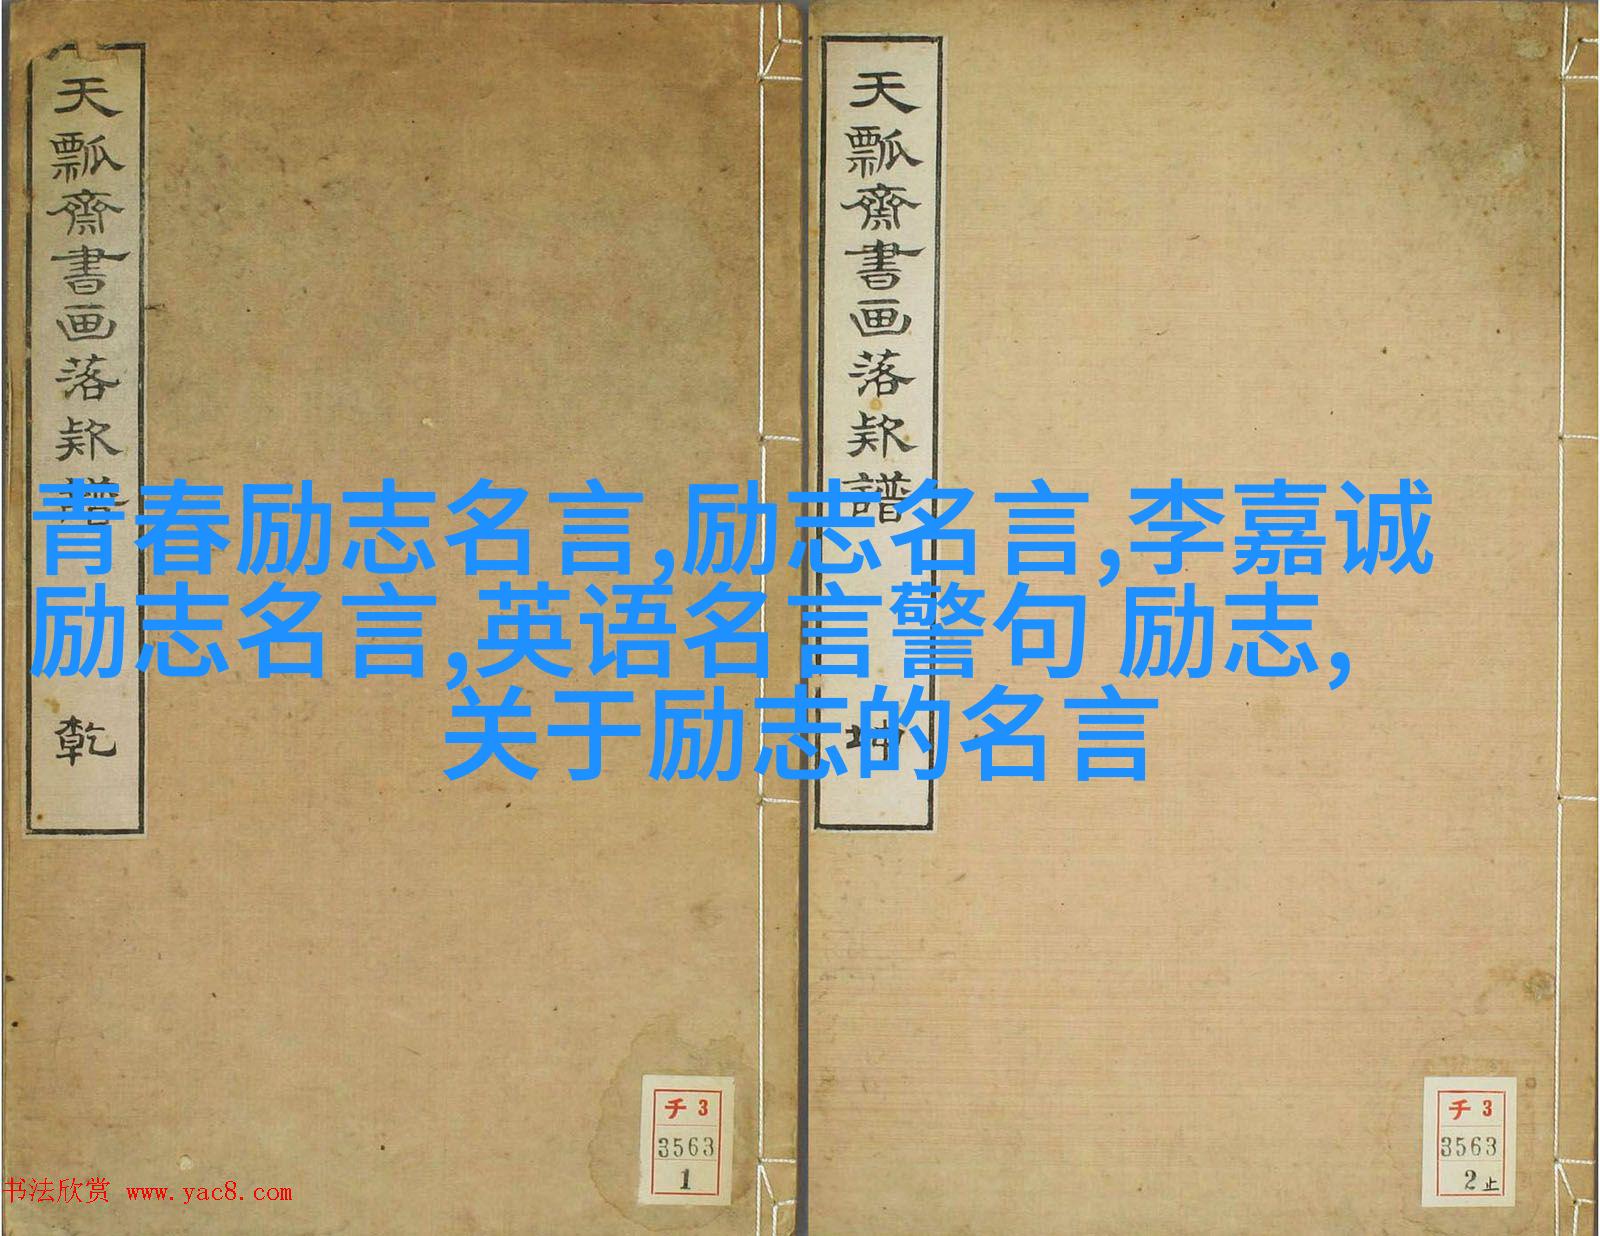 天瓢齋書画落款譜
乾
天瓢齋書画落款譜
坤
青春励志名言,励志名言,李嘉诚
励志名言,英语名言警句 励志,
关于励志的名言
チ 3
3563
1
チ 3
3563
2止
书法欣赏 www.yac8.com